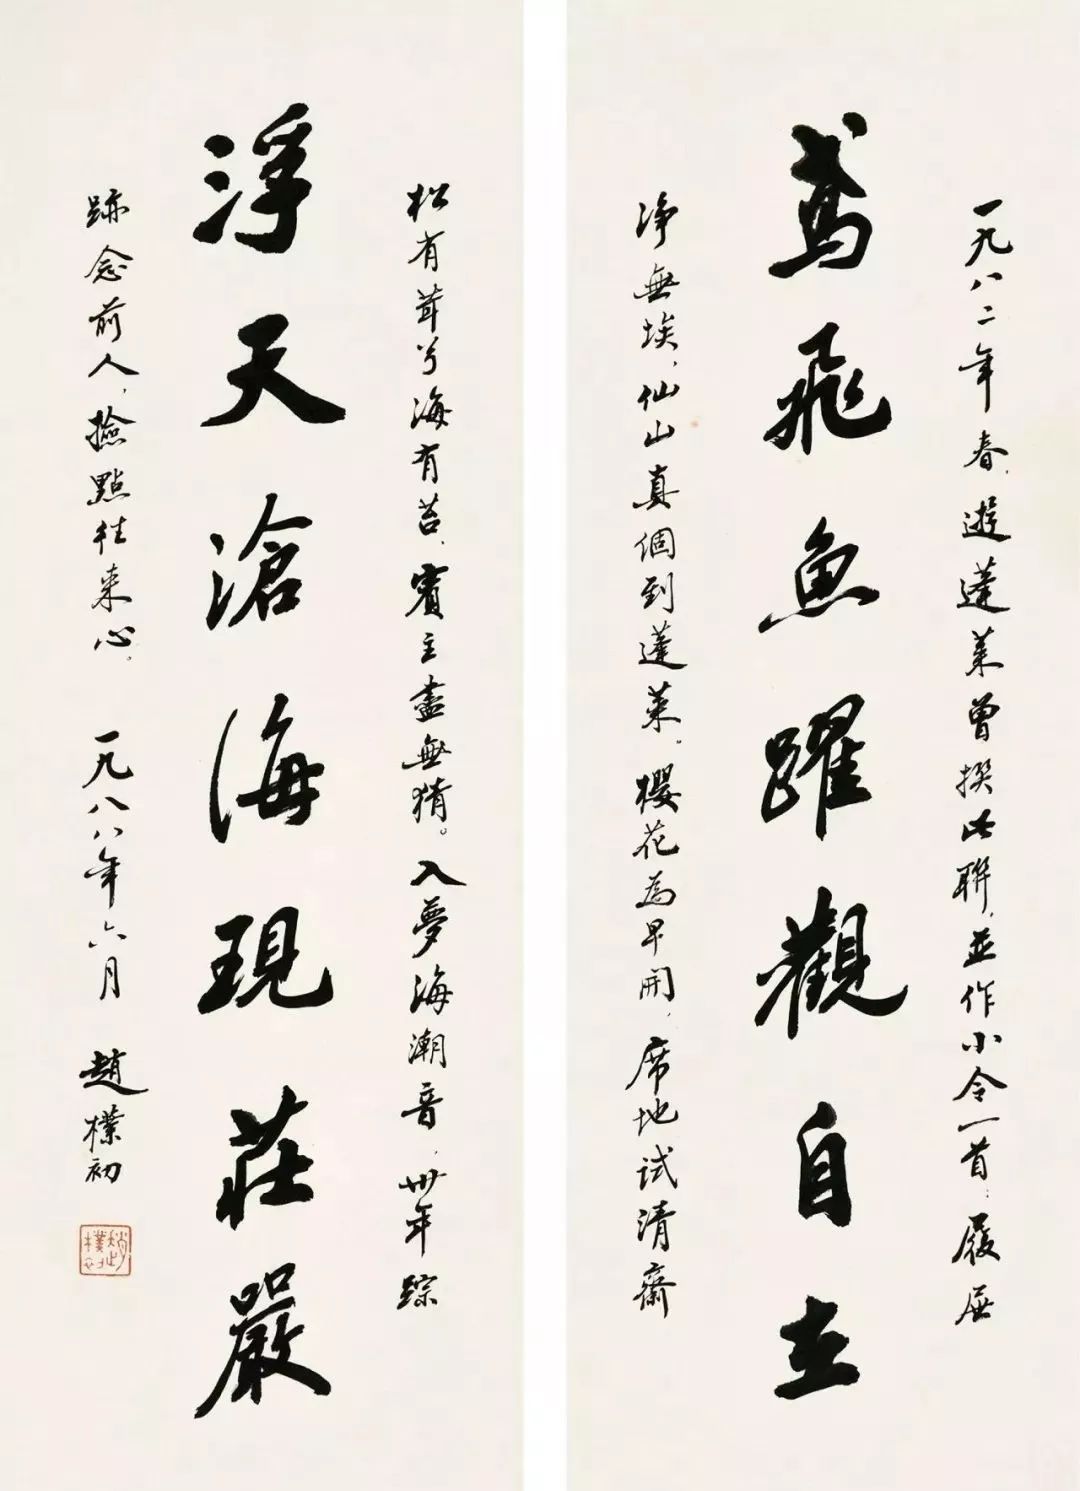 一九八二年春，遊蓬萊曾撰此聯，並作小令一首：履屐
鳶飛魚躍觀自在
净無埃，仙山真個到蓬萊。櫻花為早開，席地試清齋
松有茸兮海有苔，賓主盡無猜。入夢海潮音，卅年踪
浮天滄海現莊嚴
跡念前人，撿點往来心。一九八八年六月 趙樸初
趙樸初